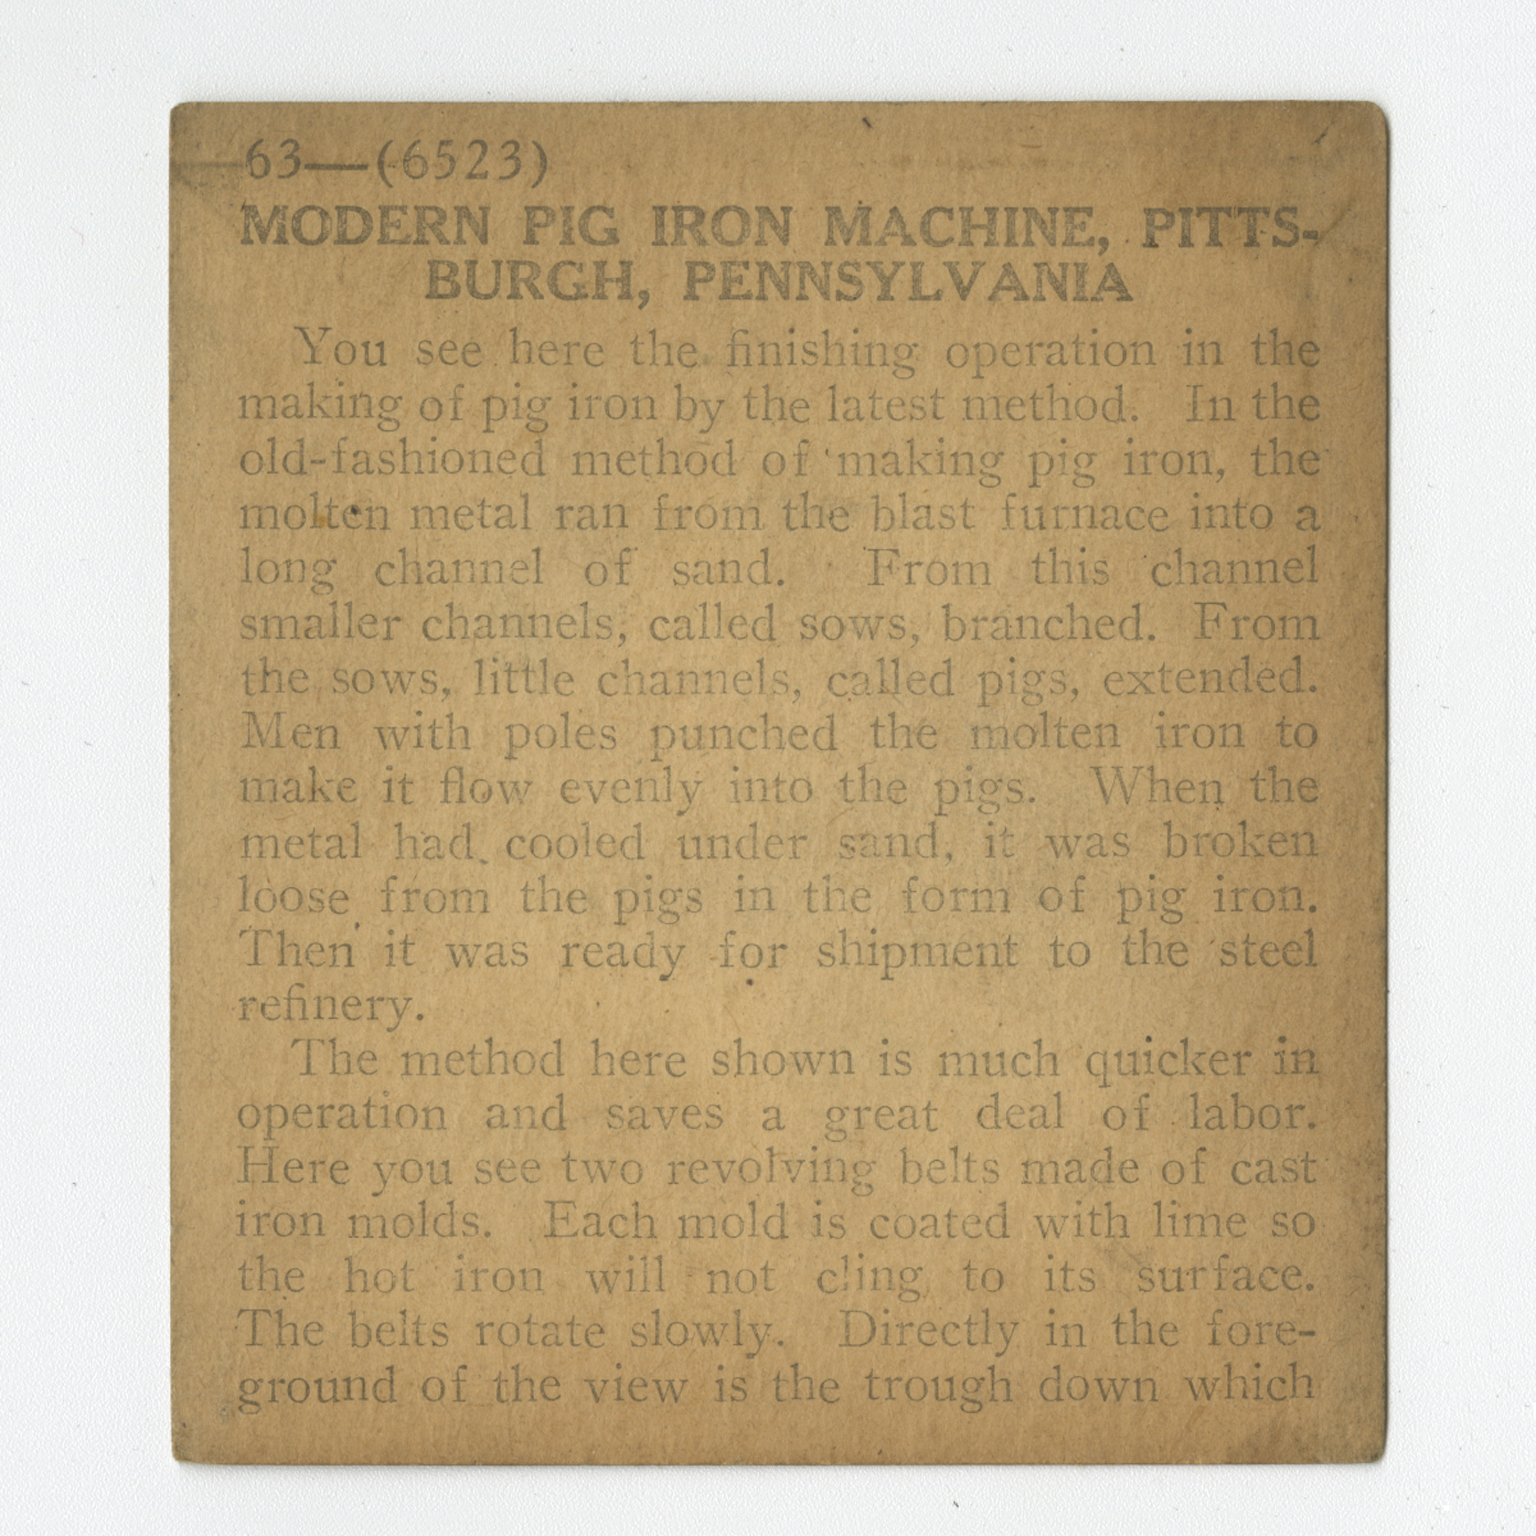 63—(6523)
MODERN PIG IRON MACHINE, PITTS-
BURGH, PENNSYLVANIA
You see here the finishing operation in the
making of pig iron by the latest method. In the
old-fashioned method of making pig iron, the
molten metal ran from the blast furnace into a
long channel of sand. From this channel
smaller channels, called sows, branched. From
the sows, little channels, called pigs, extended.
Men with poles punched the molten iron to
make it flow evenly into the pigs. When the
metal had cooled under sand, it was broken
loose from the pigs in the form of pig iron.
Then it was ready for shipment to the steel
refinery.
The method here shown is much quicker in
operation and saves a great deal of labor.
Here you see two revolving belts made of cast
iron molds. Each mold is coated with lime so
the hot iron will not cling to its surface.
The belts rotate slowly. Directly in the fore-
ground of the view is the trough down which